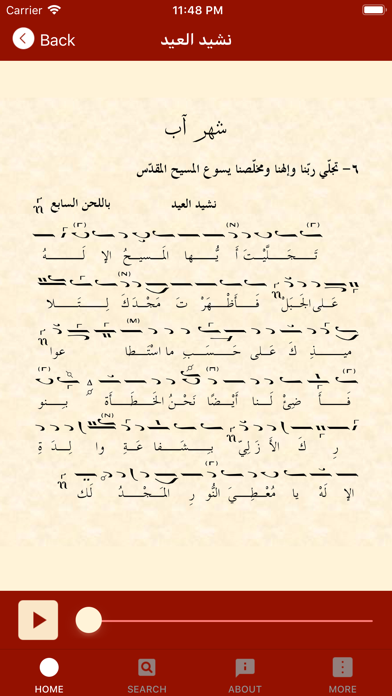 Carrier 11:48 PM
Back نشيد العيد
شهر آب
٦- تجلّي ربّنا وإلهنا ومخلّصنا يسوع المسيح المقدّس
نشيد العيد باللحن السابع
تَـجَـلَّـيْـتَ أَ يُّـها الـمَـسـيـحُ الإِ لَـــهُ
عَـلى الجَـبَـلْ فَـأَظْـهَـرْ تَ مَـجْـدَكَ لِـتَـلا
مـيـذِ كَ عَـلى حَـسَـبِ ما اسْـتَـطا عوا
فَـأَ ضِئْ لَـنا أَيْـضًا نَحْـنُ الخَـطَـأَةَ بِـنو
رِ كَ الأَ زَ لِـيّ بِـشَـفا عَـةِ وا لِـدَةِ
الإِ لَهْ يا مُـعْـطِـيَ النُّـو رِ المَـجْـدُ لَكَ
HOME SEARCH ABOUT MORE